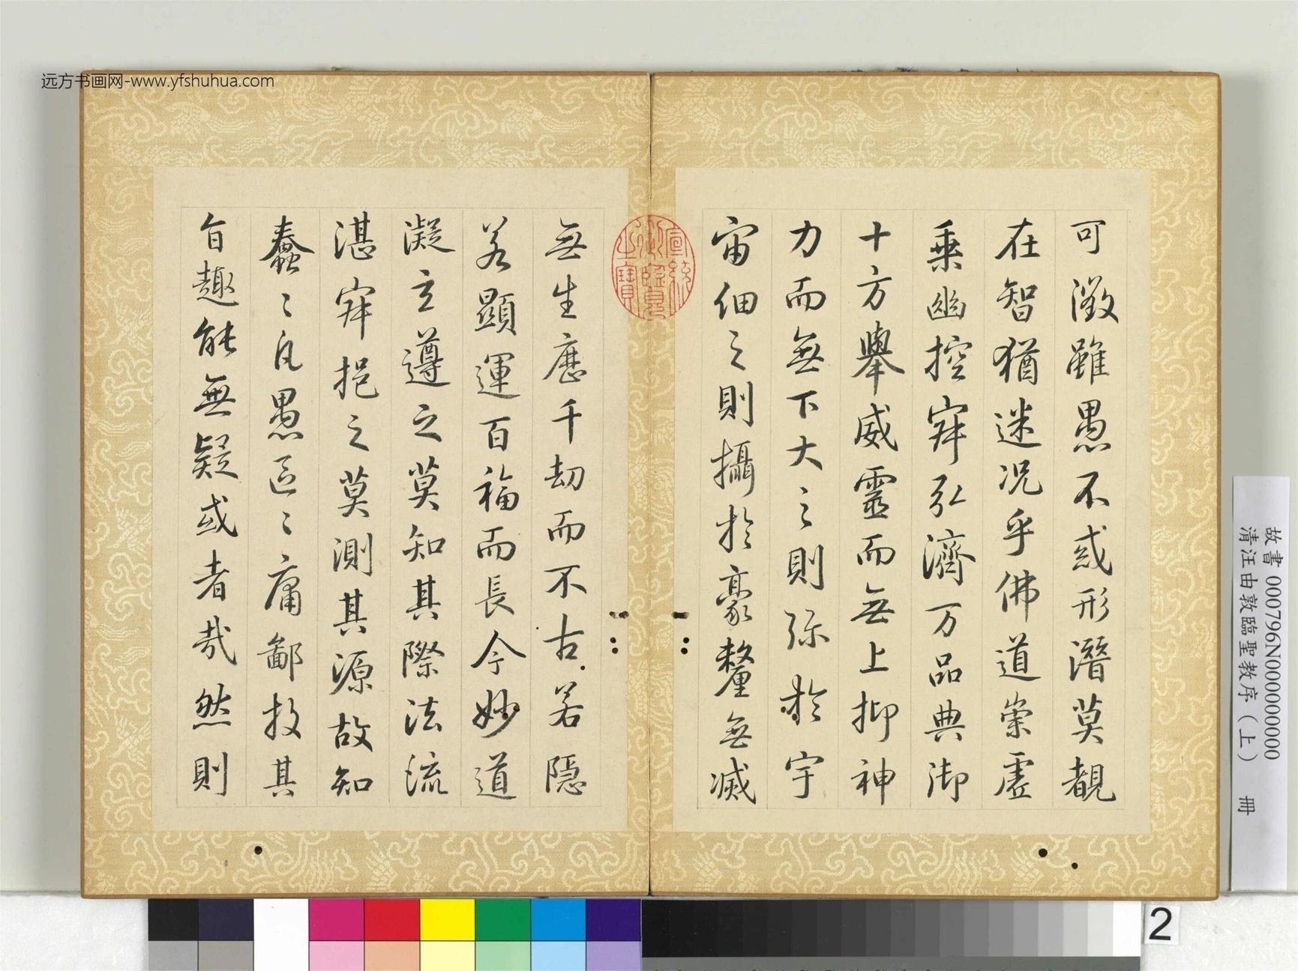 远方书画网-www.yfshuhua.com
可徵雖愚不惑形潛莫覩
在智猶迷况乎佛道崇虛
乗幽控寂弘濟万品典御
十方舉威靈而無上抑神
力而無下大之則弥於宇
宙細之則攝於豪釐無滅
無生歷千劫而不古若隱
若顯運百福而長今妙道
凝玄遵之莫知其際法流
湛寂挹之莫測其源故知
蠢〻凡愚區〻庸鄙投其
旨趣能無疑或者哉然則
宣統御覽之寶
故書 000796N000000000
清汪由敦臨聖教序（上） 冊
2